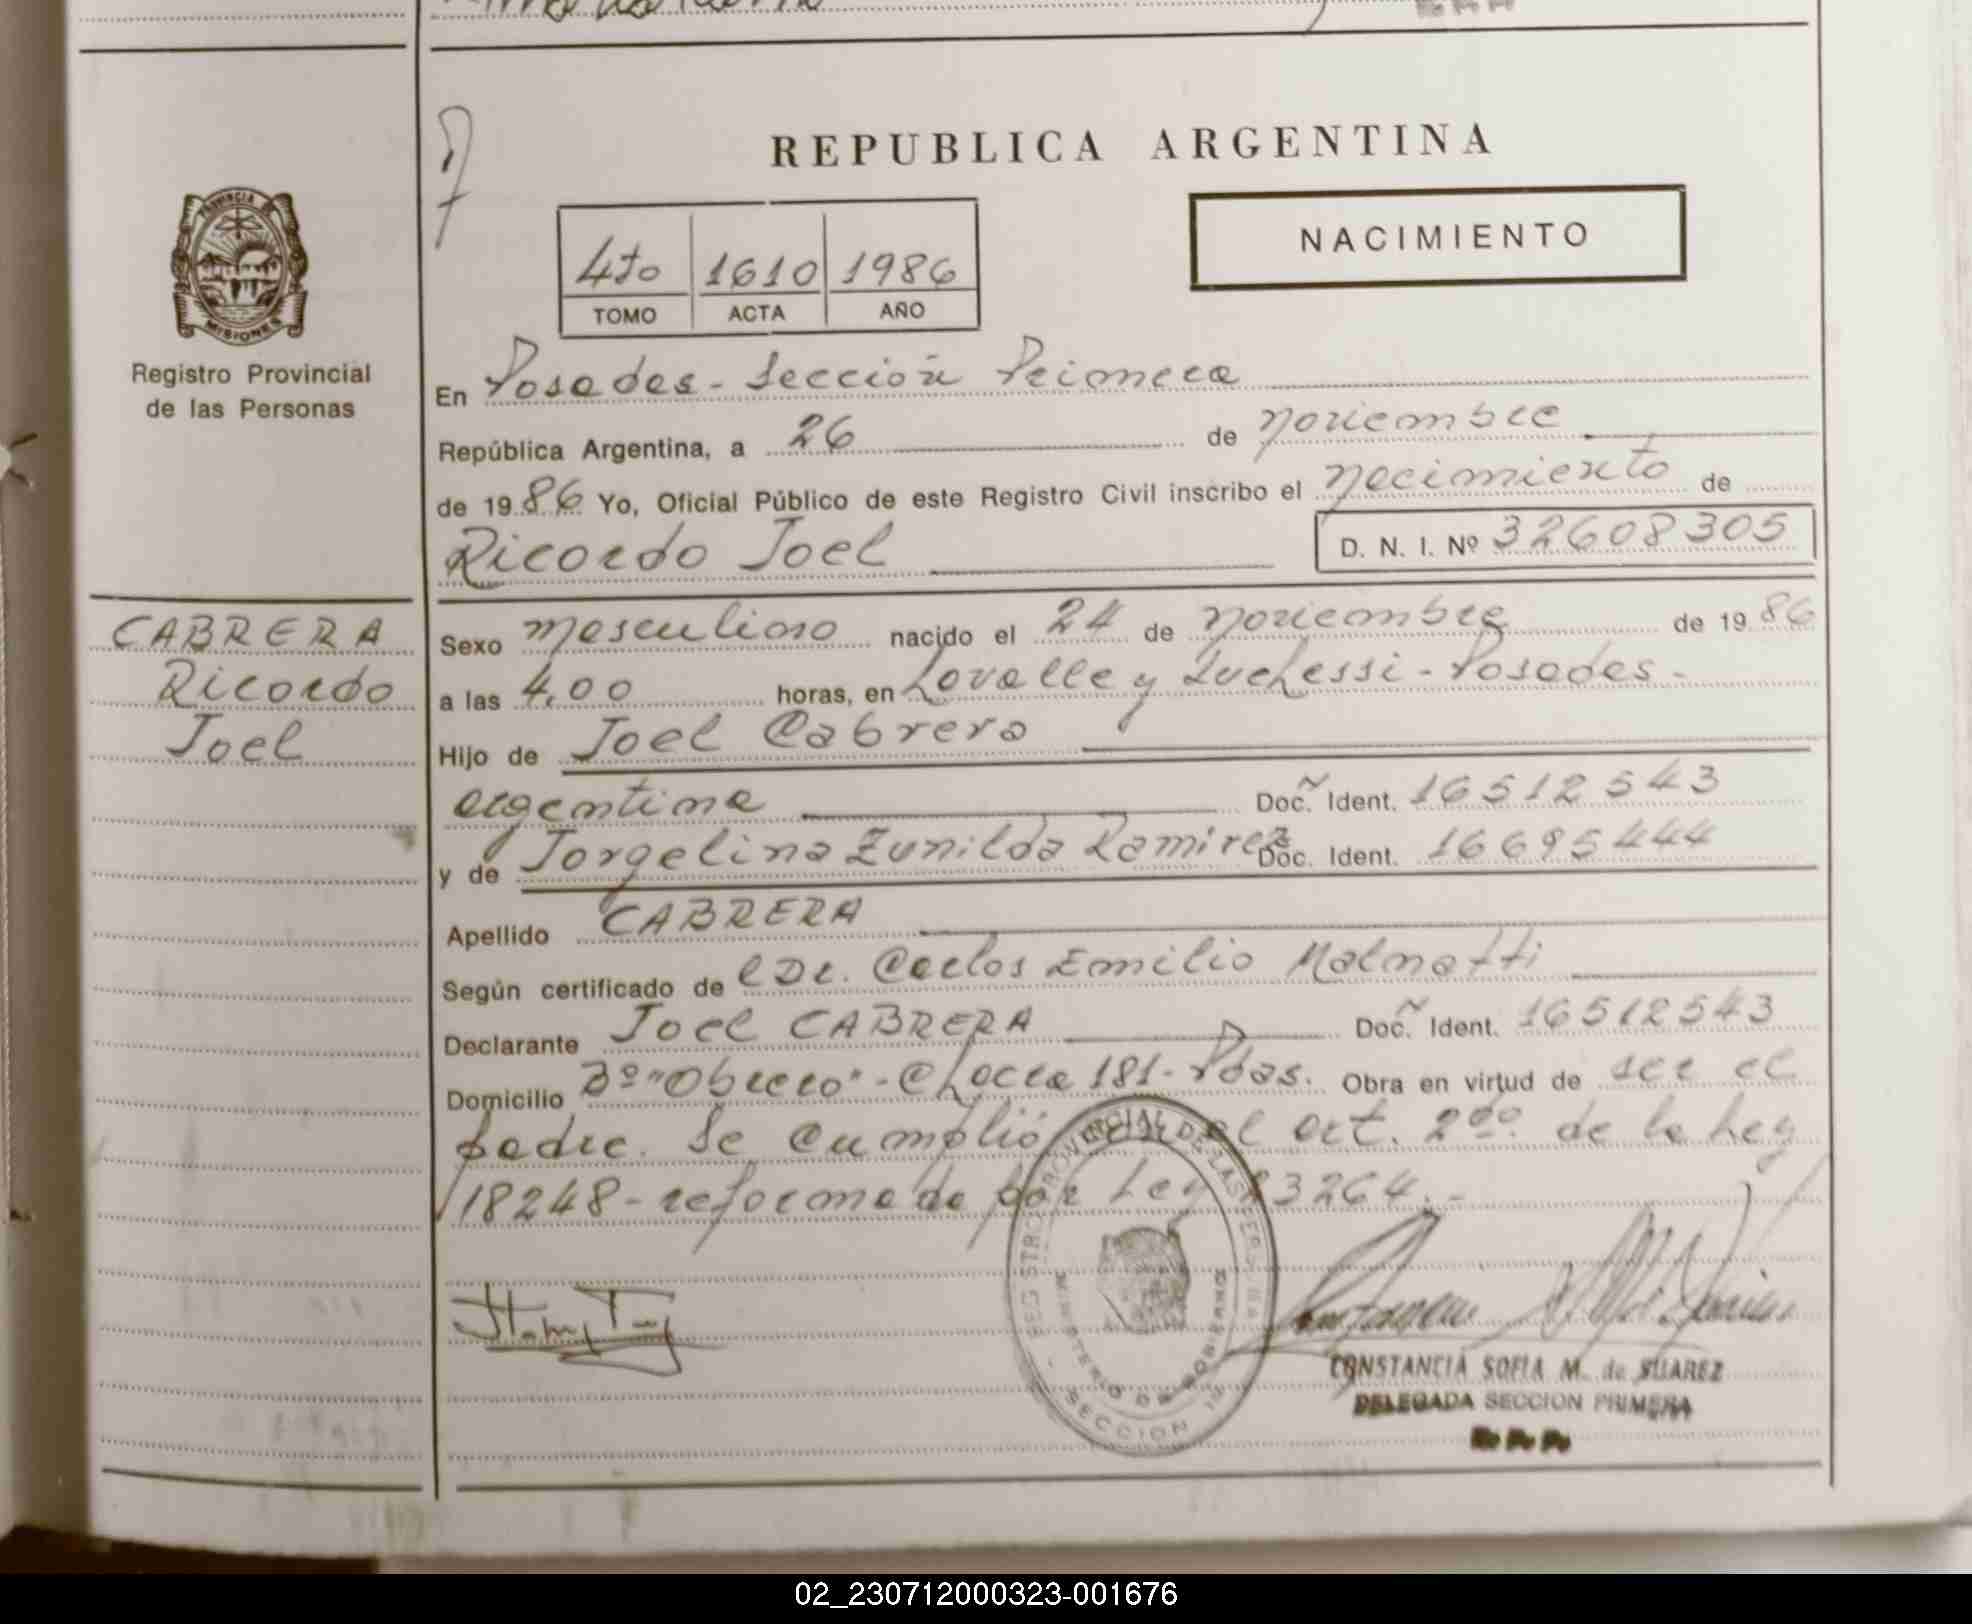 REPUBLICA ARGENTINA
NACIMIENTO
4to 1610 1986
TOMO ACTA AÑO
PROVINCIA DE
MISIONES
Registro Provincial
de las Personas
En Posadas - Sección Primera
República Argentina, a 26 de noviembre
de 1986 Yo, Oficial Público de este Registro Civil inscribo el nacimiento de
Ricardo Joel D. N. I. Nº 32608305
CABRERA
Ricardo
Joel
Sexo masculino nacido el 24 de noviembre de 1986
a las 4,00 horas, en Lavalle y Luchessi - Posadas -
Hijo de Joel Cabrera
argentina Doc. Ident. 16512543
y de Jorgelina Zunilda Ramirez Doc. Ident. 16695444
Apellido CABRERA
Según certificado de l Dr. Carlos Emilio Malmatti
Declarante Joel CABRERA Doc. Ident. 16512543
Domicilio Bº "Obrero" - Chacra 181 - Pdas. Obra en virtud de ser el
padre. Se cumplió con el art. 2do. de la Ley
18248 - reformada por Ley 23264. -
REGISTRO PROVINCIAL DE LAS PERSONAS
MINISTERIO DE GOBIERNO
SECCION 1ra
CONSTANCIA SOFIA M. de SUAREZ
DELEGADA SECCION PRIMERA
R. P. P.
02_230712000323-001676